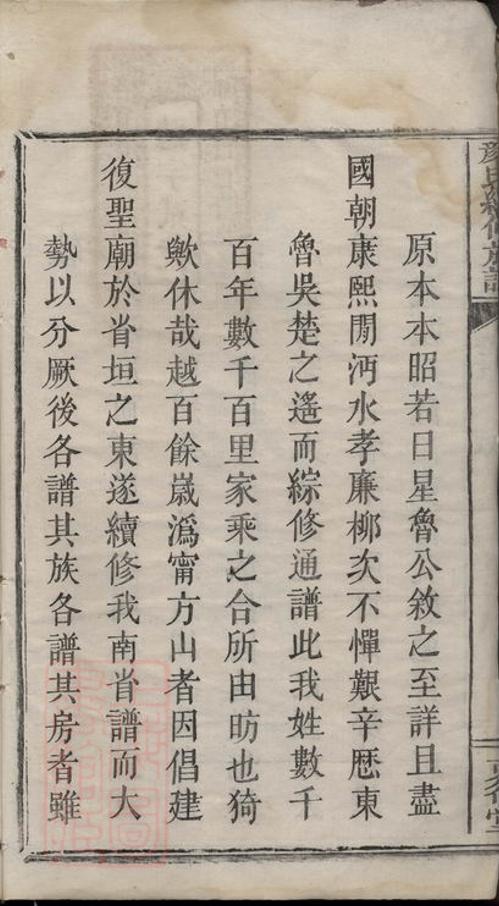 顏氏續修族譜
原本本昭若日星魯公敘之至詳且盡
國朝康熙閒沔水孝廉柳次不憚艱辛歷東
魯吳楚之遙而綜修通譜此我姓數千
百年數千百里家乘之合所由昉也猗
歟休哉越百餘嵗溈甯方山者因倡建
復聖廟於省垣之東遂續修我南省譜而大
勢以分厥後各譜其族各譜其房者雖